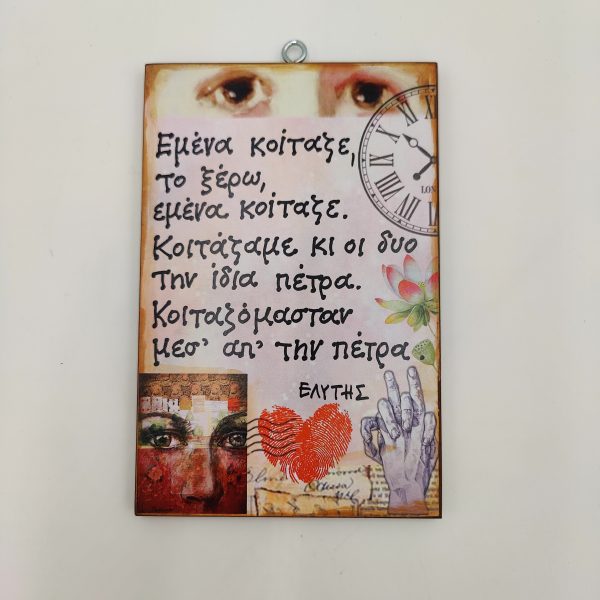 Εμένα κοίταζε,
το ξέρω,
εμένα κοίταζε.
Κοιτάζαμε κι οι δυο
την ίδια πέτρα.
Κοιταζόμασταν
μεσ' απ' την πέτρα
ΕΛΥΤΗΣ
LON
Odessa